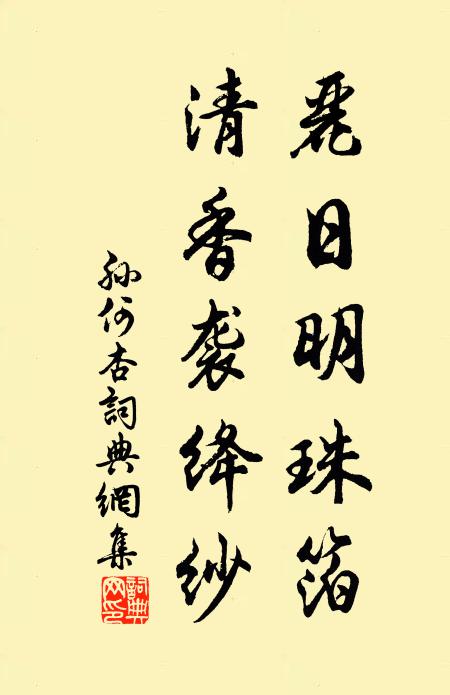 麗日明珠箔
清香袭绛紗
孫何杏詞典網集
詞典网印